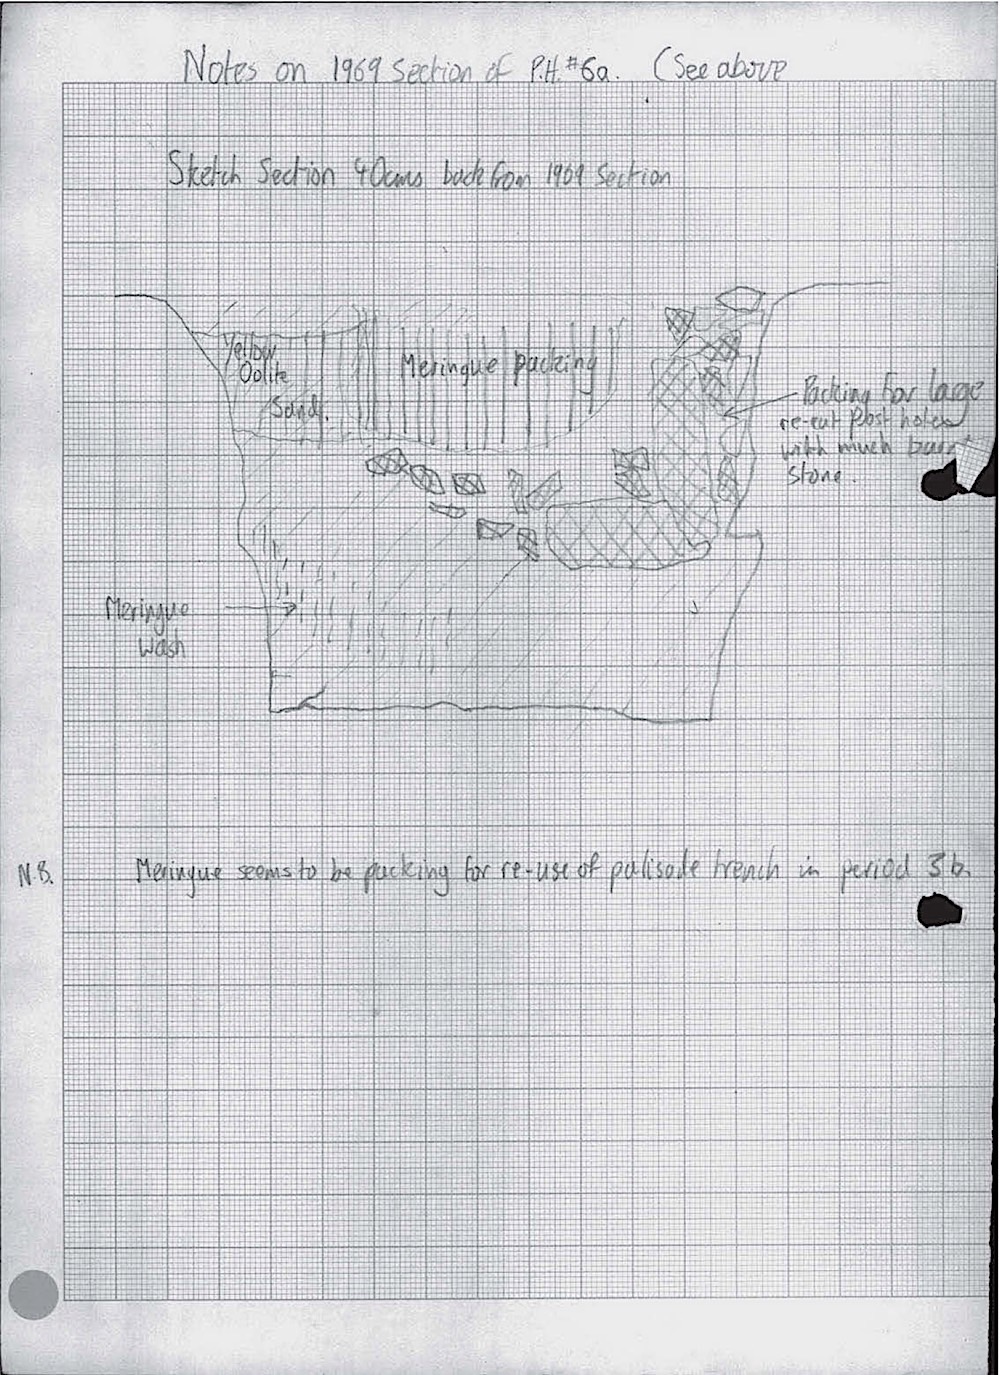 Notes on 1969 section of P.H.#6a. (See above
Sketch Section 40cms back from 1969 Section
Yellow
Oolite
Sand.
Meringue packing
Packing for large
re-cut post holes
with much burnt
stone.
Meringue
wash
N.B. Meringue seems to be packing for re-use of palisade trench in period 3b.